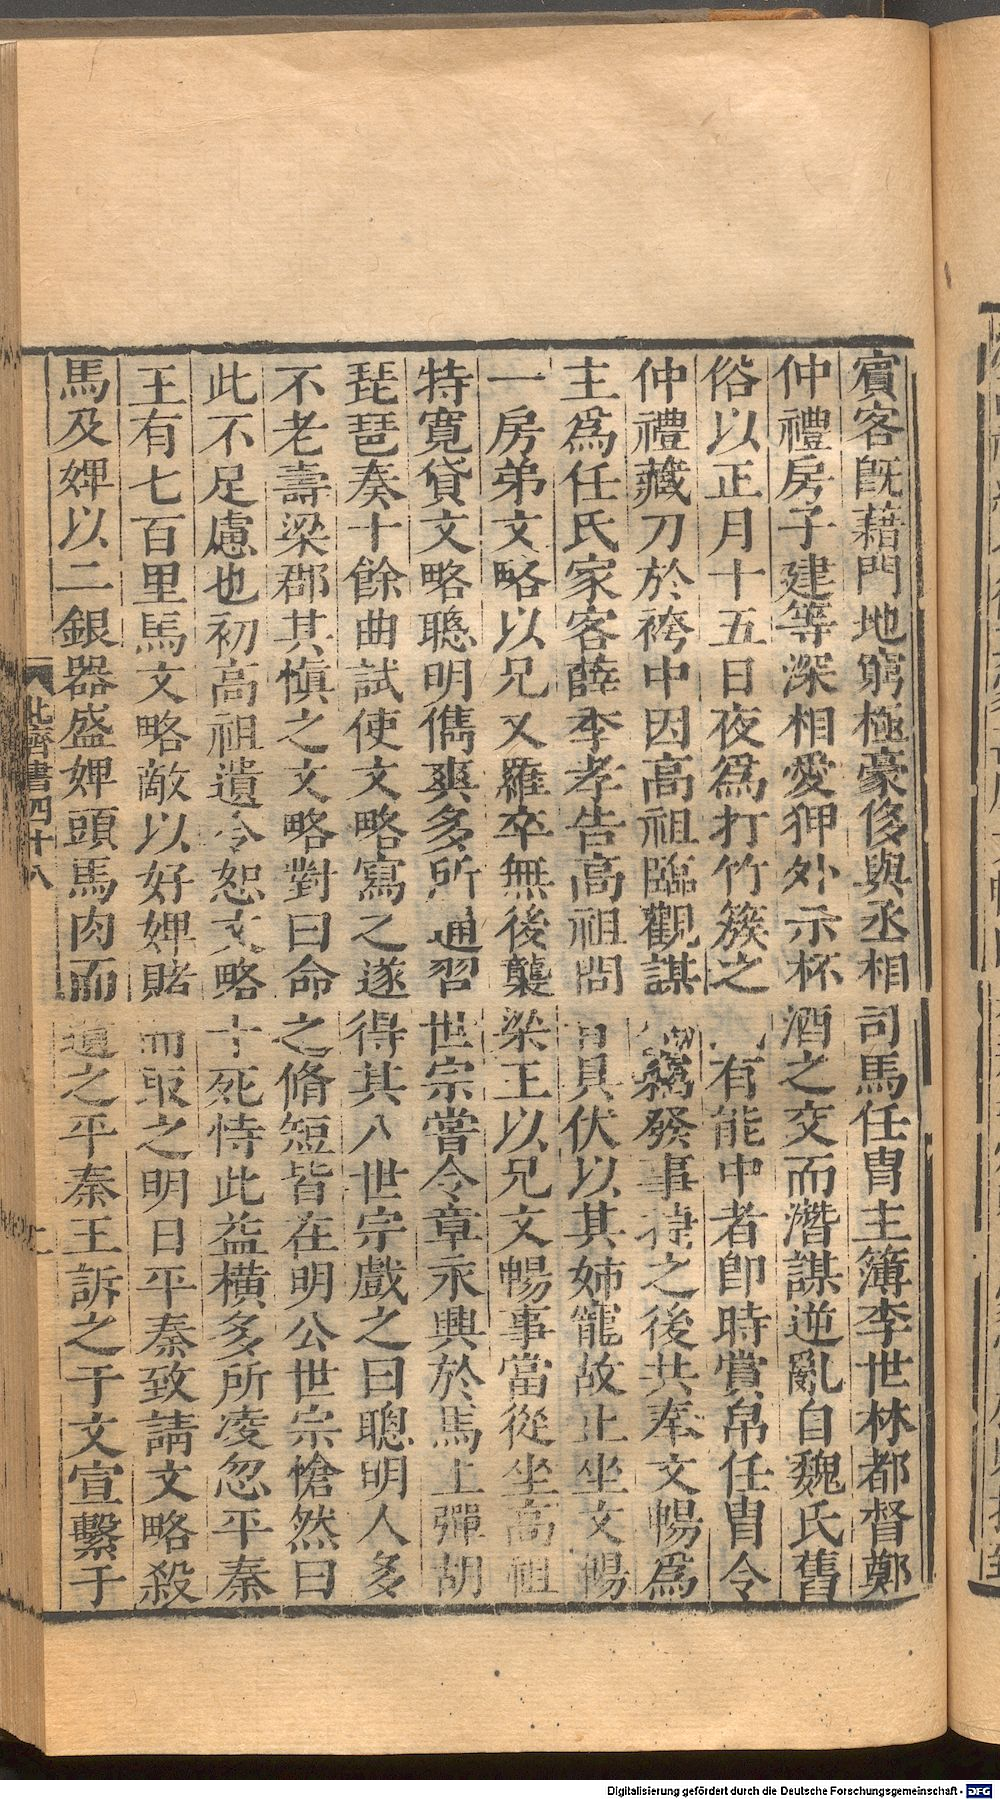 賓客旣藉門地窮極豪侈與丞相司馬任胄主簿李世林都督鄭
仲禮房子建等深相愛狎外示杯酒之交而潛謀逆亂自魏氏舊
俗以正月十五日夜爲打竹簇之有能中者卽時賞帛任胄令
仲禮藏刀於袴中因高祖臨觀謀竊發事捷之後共奉文暢爲
主爲任氏家客薛季孝告高祖問具伏以其姊寵故止坐文暢
一房弟文略以兄乂羅卒無後襲梁王以兄文暢事當從坐高祖
特寬貸文略聰明儁爽多所通習世宗嘗令章永興於馬上彈胡
琵琶奏十餘曲試使文略寫之遂得其八世宗戲之曰聰明人多
不老壽梁郡其愼之文略對曰命之脩短皆在明公世宗愴然曰
此不足慮也初高祖遺令恕文略十死恃此益橫多所凌忽平秦
王有七百里馬文略敵以好婢賭而取之明日平秦致請文略殺
馬及婢以二銀器盛婢頭馬肉而遺之平秦王訴之于文宣繫于
北齊書四十八
Digitalisierung gefördert durch die Deutsche Forschungsgemeinschaft - DFG